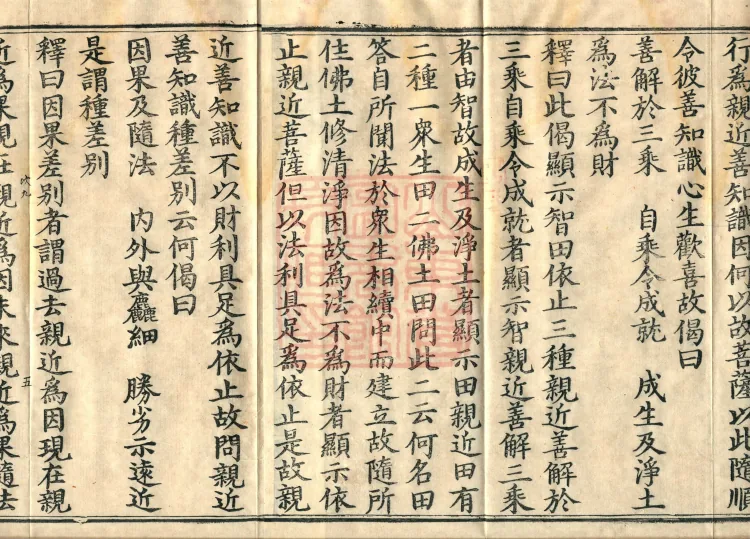 行為親近善知識因何以故菩薩以此隨順
令彼善知識心生歡喜故偈曰
善解於三乘　自乘令成就　成生及淨土
為法不為財
釋曰此偈顯示智田依止三種親近善解於
三乘自乘令成就者顯示智親近善解三乘
者由智故成生及淨土者顯示田親近田有
二種一衆生田二佛土田問此二云何名田
答自所聞法於衆生相續中而建立故隨所
住佛土修清淨因故為法不為財者顯示依
止親近菩薩但以法利具足為依止是故親
近善知識不以財利具足為依止故問親近
善知識種差別云何偈曰
因果及隨法　内外與麤細　勝劣示遠近
是謂種差別
釋曰因果差別者謂過去親近為因現在親
近為果現在親近為因未來親近為果隨法